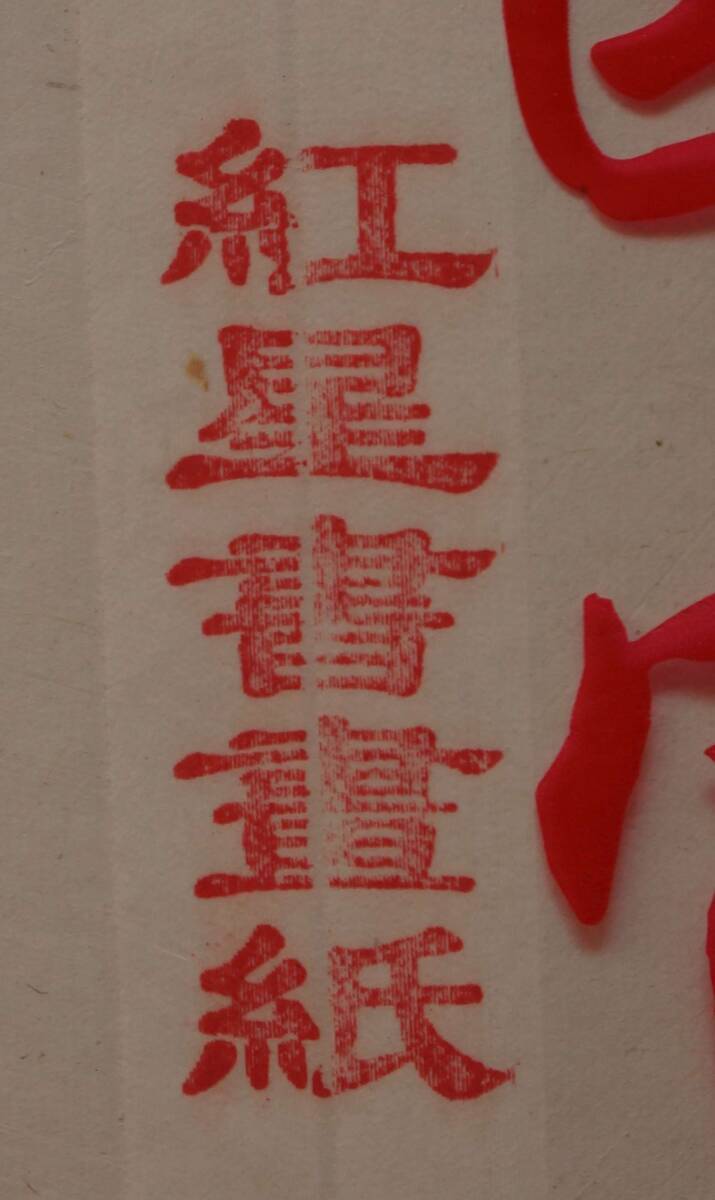 紅星書畫紙